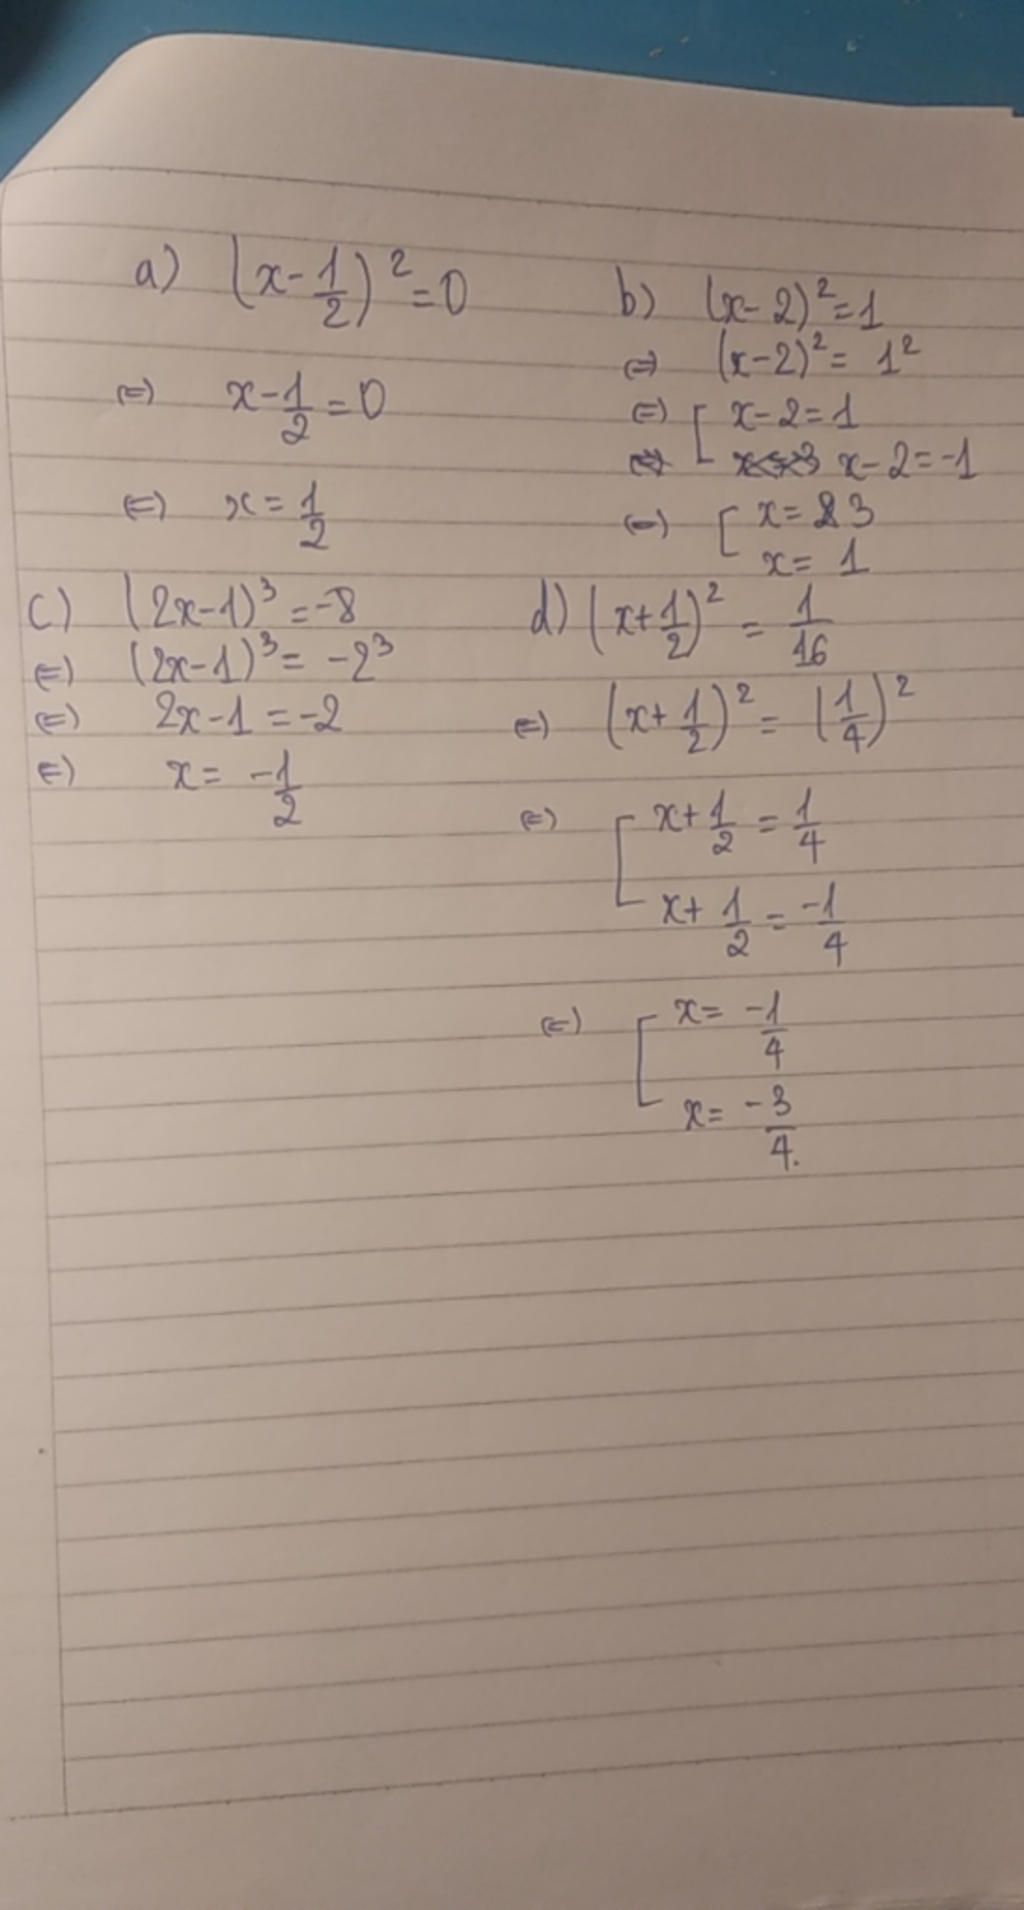 a) (x - 1/2)² = 0
⇔ x - 1/2 = 0
⇔ x = 1/2
b) (x - 2)² = 1
⇔ (x - 2)² = 1²
⇔ [ x - 2 = 1
x - 2 = -1
⇔ [ x = 3
x = 1
c) (2x - 1)³ = -8
⇔ (2x - 1)³ = -2³
⇔ 2x - 1 = -2
⇔ x = -1/2
d) (x + 1/2)² = 1/16
⇔ (x + 1/2)² = (1/4)²
⇔ [ x + 1/2 = 1/4
x + 1/2 = -1/4
⇔ [ x = -1/4
x = -3/4.